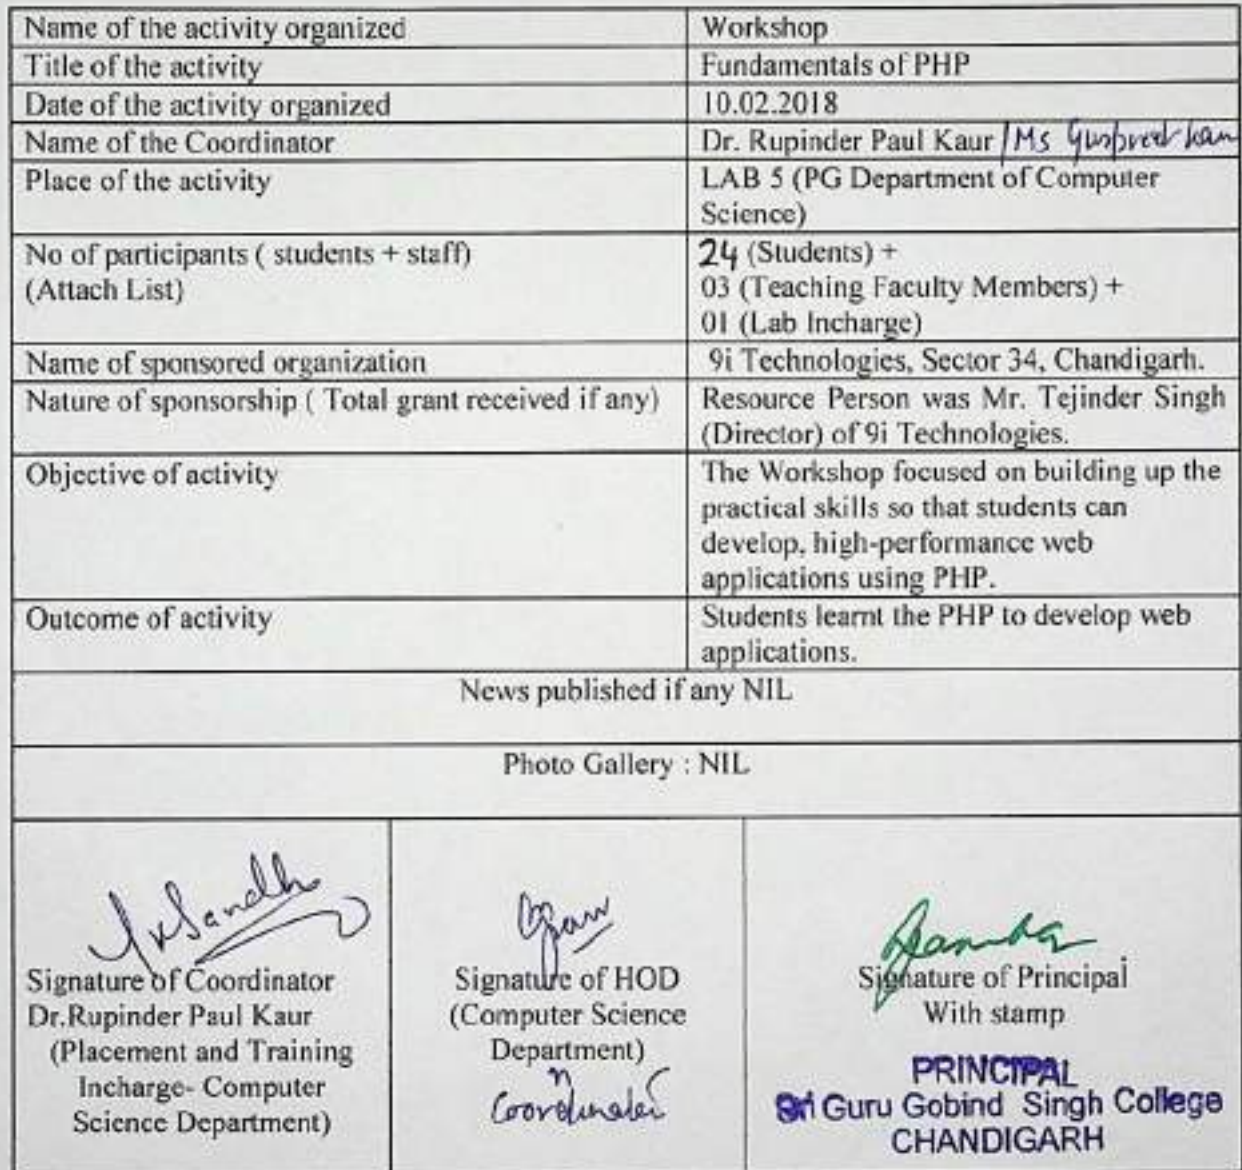 Name of the activity organized Workshop
Title of the activity Fundamentals of PHP
Date of the activity organized 10.02.2018
Name of the Coordinator Dr. Rupinder Paul Kaur / Ms Gurpreet Kaur
Place of the activity LAB 5 (PG Department of Computer
Science)
No of participants ( students + staff) 24 (Students) +
(Attach List) 03 (Teaching Faculty Members) +
01 (Lab Incharge)
Name of sponsored organization 9i Technologies, Sector 34, Chandigarh.
Nature of sponsorship ( Total grant received if any) Resource Person was Mr. Tejinder Singh
(Director) of 9i Technologies.
Objective of activity The Workshop focused on building up the
practical skills so that students can
develop, high-performance web
applications using PHP.
Outcome of activity Students learnt the PHP to develop web
applications.
News published if any NIL
Photo Gallery : NIL
Signature of Coordinator
Dr.Rupinder Paul Kaur
(Placement and Training
Incharge- Computer
Science Department)
Signature of HOD
(Computer Science
Department)
Coordinator
Signature of Principal
With stamp
PRINCIPAL
Sri Guru Gobind Singh College
CHANDIGARH